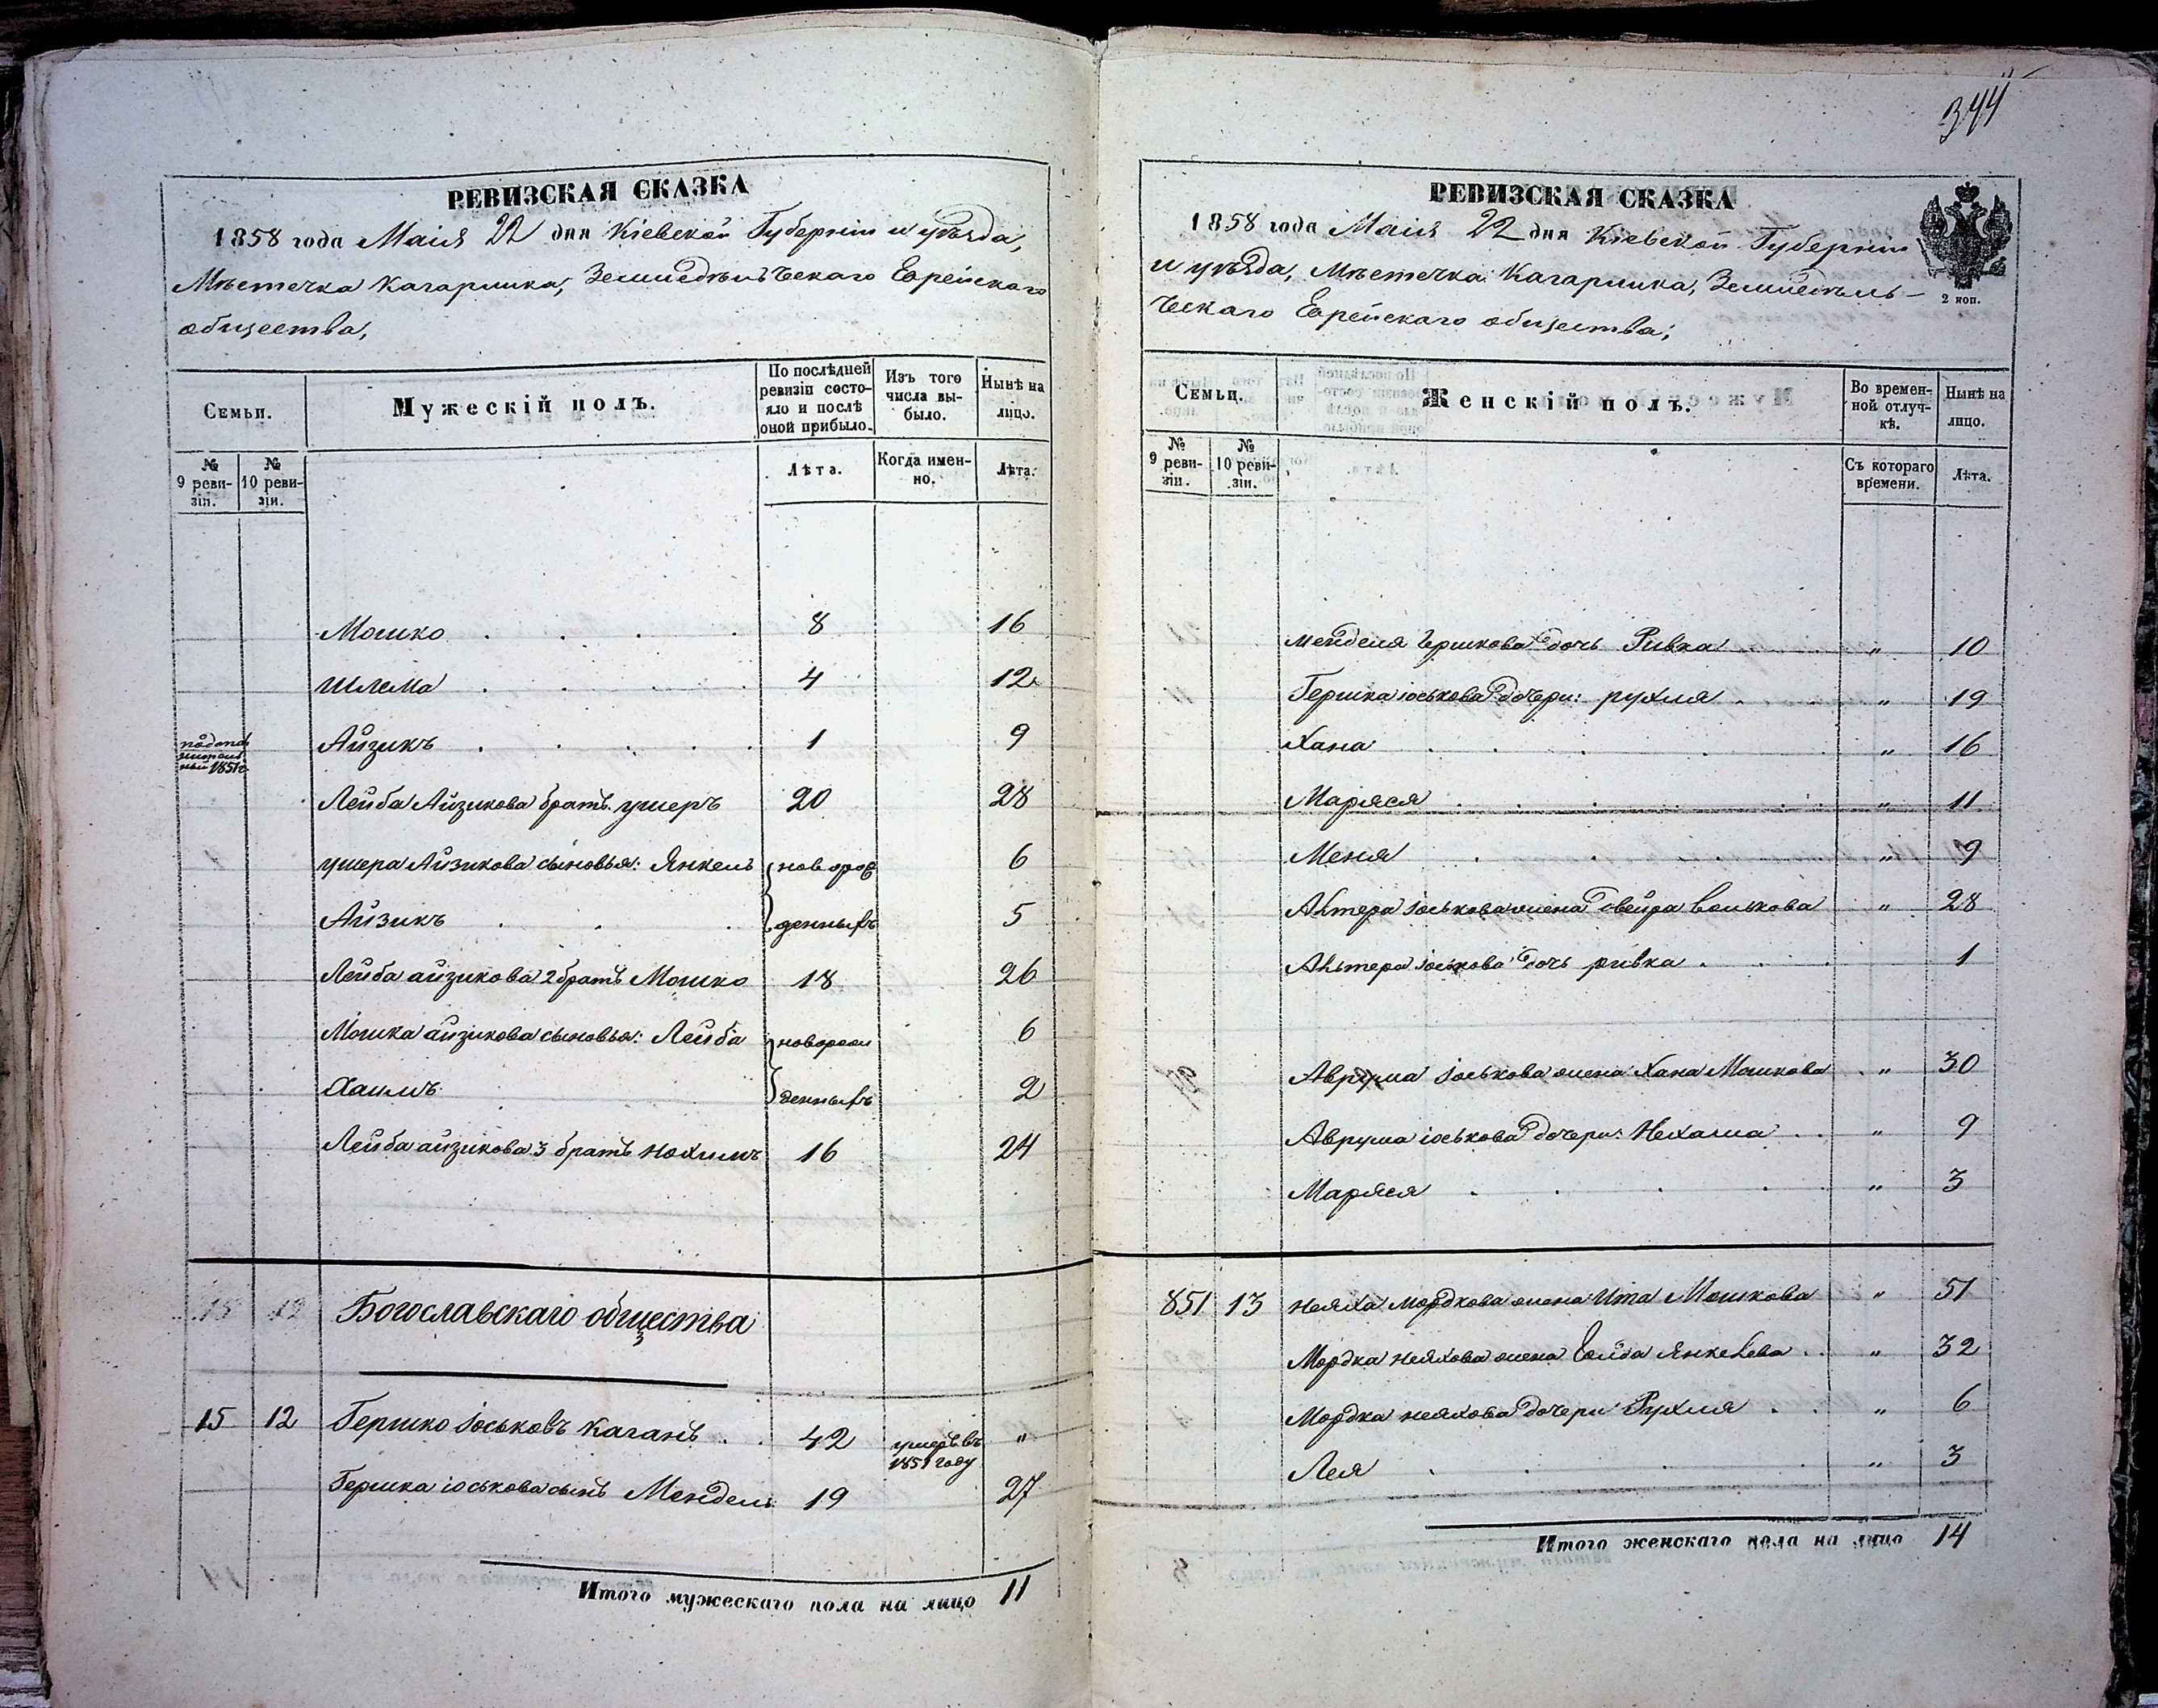 344
РЕВИЗСКАЯ СКАЗКА
1858 года Маія 22 дня Кіевской Губерніи и уѣзда,
Мѣстечка Кагарлика, Земледѣльческаго Еврейскаго
общества,
Семьи.
Мужескій полъ.
По послѣдней ревизіи состояло и послѣ оной прибыло.
Изъ того числа выбыло.
Нынѣ на лицо.
№ 9 ревизіи.
№ 10 ревизіи.
Лѣта.
Когда именно.
Лѣта.
Мошко 8 16
Шлема 4 12
Айзикъ 1 9
1851
Лейба Айзикова братъ ушеръ 20 28
ушера Айзикова сыновья: Янкель новорож 6
Айзикъ денныхъ 5
Лейба айзикова 2 братъ Мошко 18 26
Мошка айзикова сыновья: Лейба новорож 6
Хаимъ денныхъ 2
Лейба айзикова 3 братъ Нохимъ 16 24
15 12 Богославскаго общества
15 12 Гершко Іоськовъ Каганъ 42 умеръ въ 1851 году "
Гершка іоськова сынъ Мендель 19 27
Итого мужескаго пола на лицо 11
РЕВИЗСКАЯ СКАЗКА
1858 года Маія 22 дня Кіевской Губерніи
и уѣзда, Мѣстечка Кагарлика, Земледѣль-
ческаго Еврейскаго общества;
2 коп.
Семьи.
Женскій полъ.
Во временной отлучкѣ.
Нынѣ на лицо.
№ 9 ревизіи.
№ 10 ревизіи.
Съ котораго времени.
Лѣта.
Менделя Гершкова дочь Ривка " 10
Гершка іоськова дочери: рухля " 19
Хана " 16
Маряся " 11
Меня " 9
Альтера Іоськова жена Двейра Волькова " 28
Альтера Іоськова дочь ривка 1
Аврума Іоськова жена Хана Мошкова " 30
Аврума іоськова дочери: Нехама " 9
Маряся " 3
851 13 Неяха Мордкова жена Ита Мошкова " 51
Мордка неяхова жена Янкелева " 32
Мордка неяхова дочери Рухля " 6
Лея " 3
Итого женскаго пола на лицо 14